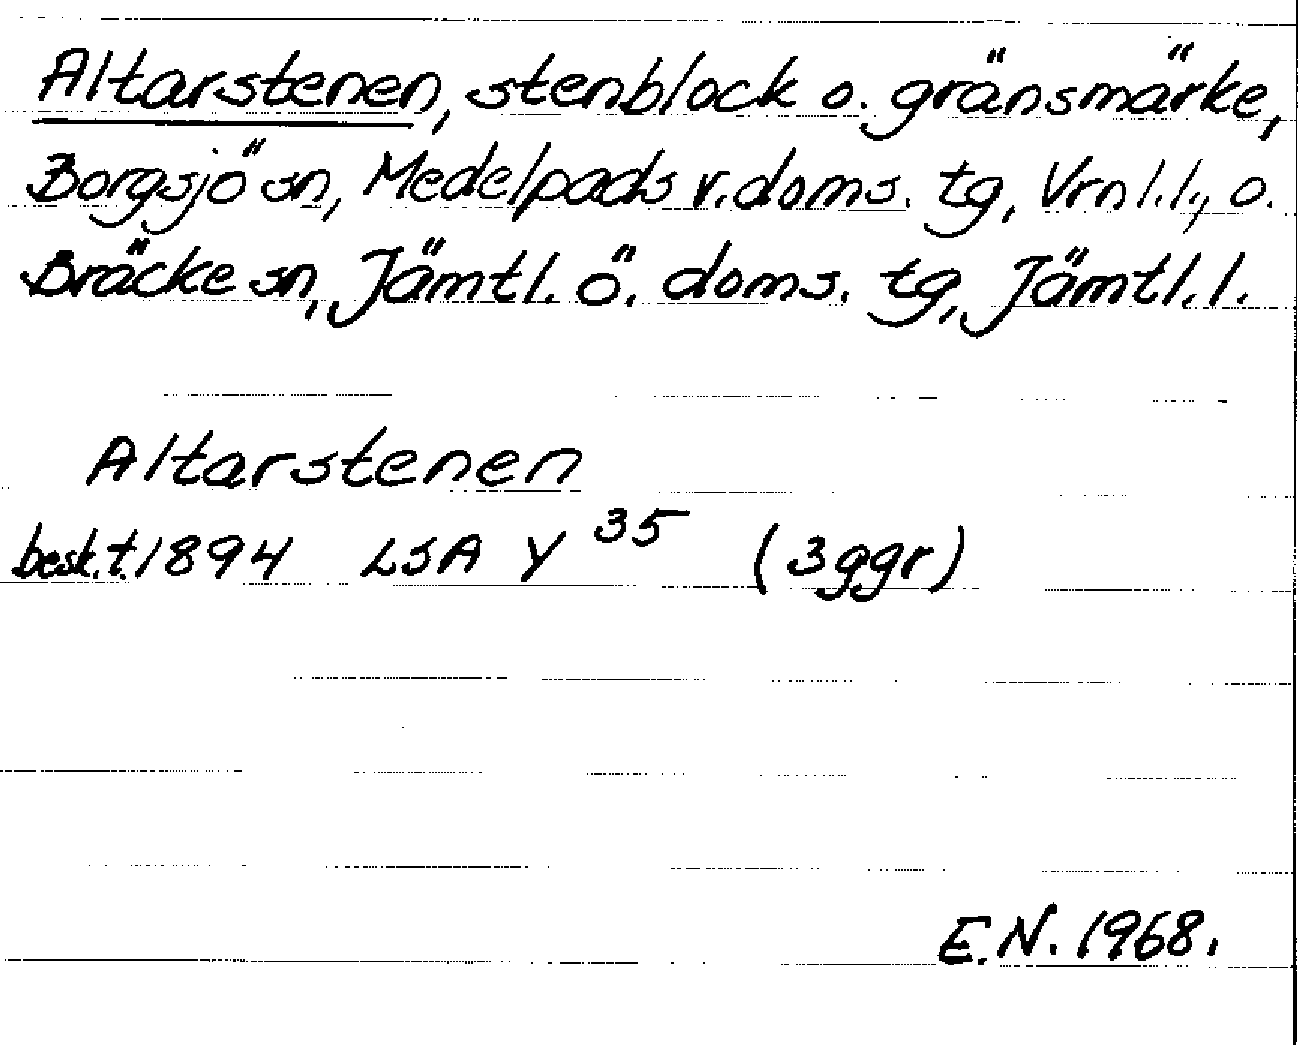 Altarstenen, stenblock o. gränsmärke,
Borgsjö sn, Medelpads v. doms. tg, Vrnl.l., o.
Bräcke sn, Jämtl. ö. doms. tg, Jämtl. l.
Altarstenen
besk.t. 1894 LSA Y 35 (3 ggr)
E.N. 1968.